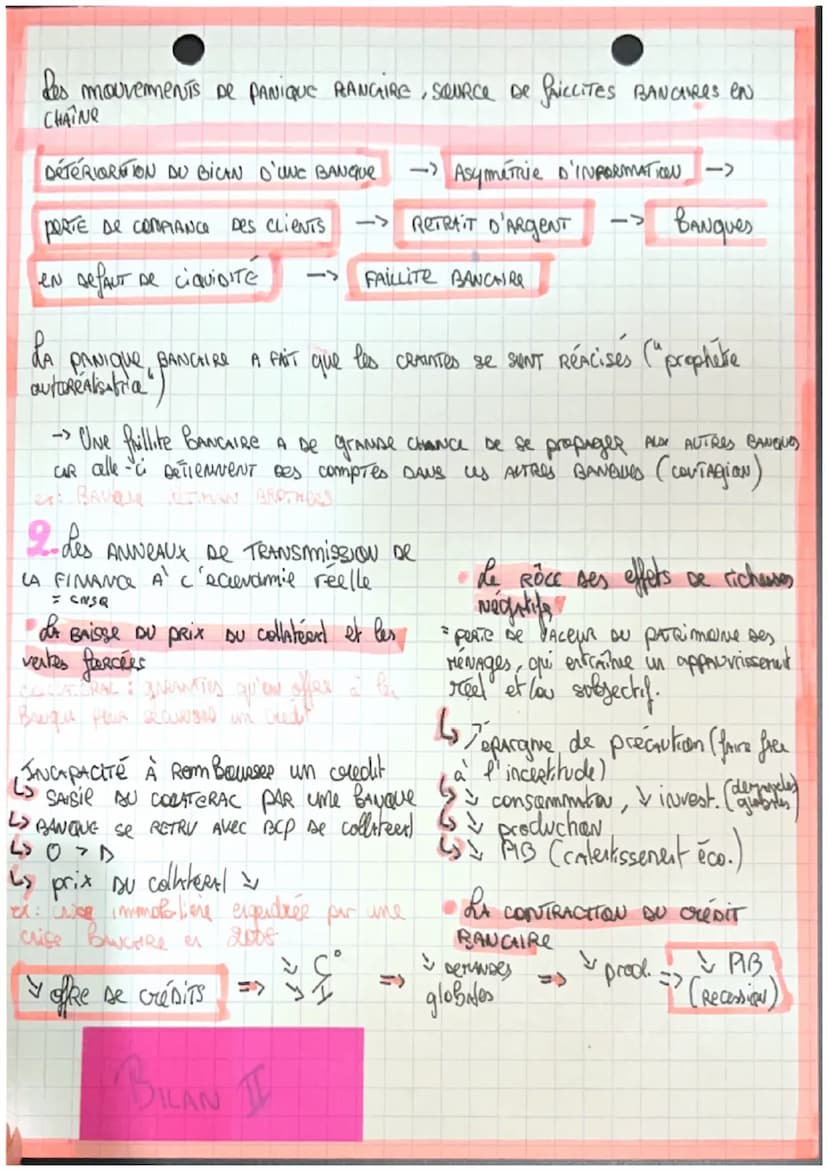 Les mouvements de panique bancaire, source de faillites bancaires en
chaîne
Détérioration du bilan d'une banque -> Asymétrie d'information ->
perte de confiance des clients -> Retrait d'argent -> Banques
en défaut de liquidité -> Faillite bancaire
La panique bancaire a fait que les craintes se sont réalisés ("prophétie
autoréalisatrice")
-> Une faillite bancaire a de grande chance de se propager aux autres banques
car celle-ci détiennent des comptes dans les autres banques (contagion)
ex: Banque Lehman Brothers
2. Les anneaux de transmission de
la finance à l'économie réelle
= cnsq
• La baisse du prix du collatéral et les
ventes forcées
Collatéral : garanties qu'on offre à la
Banque pour un credit
Incapacité à rembourser un credit
↳ saisie du collateral par une banque
↳ Banque se retru avec bcp de collateral
↳ O > D
↳ prix du collatéral ↘
ex: crise immobilière engendrée par une
crise bancaire en 2008
• Le rôle des effets de richesses
négatifs
= perte de valeur du patrimoine des
ménages, qui entraîne un appauvrissement
réel et/ou subjectif.
↳ ↗ épargne de précaution (faire face
à l'incertitude)
↳ ↘ consommation, ↓ invest. (demandes globales)
↳ ↘ production
↳ ↘ PIB (ralentissement éco.)
• La contraction du crédit
bancaire
↘ offre de crédits => ↘ C° ↘ I => ↘ demandes globales => ↘ prod. => ↘ PIB (Recession)
Bilan II